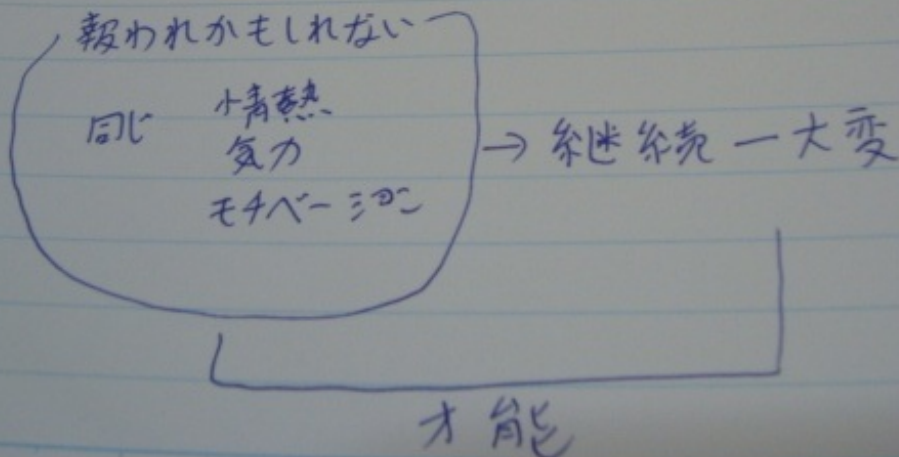 報われかもしれない
同じ 情熱
気力
モチベーション
→ 継続 ー 大変
才能